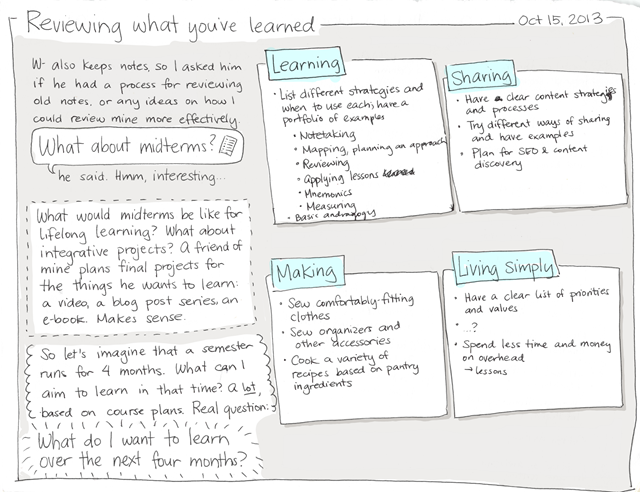 Reviewing what you've learned
Oct 15, 2013
W- also keeps notes, so I asked him
if he had a process for reviewing
old notes, or any ideas on how I
could review mine more effectively.
What about midterms?
he said. Hmm, interesting...
What would midterms be like for
lifelong learning? What about
integrative projects? A friend of
mine plans final projects for
the things he wants to learn:
a video, a blog post series, an
e-book. Makes sense.
So let's imagine that a semester
runs for 4 months. What can I
aim to learn in that time? A lot,
based on course plans. Real question:
What do I want to learn
over the next four months?
Learning
• List different strategies and
when to use each; have a
portfolio of examples
• Notetaking
• Mapping, planning an approach
• Reviewing
• Applying lessons
• Mnemonics
• Measuring
• Basic andragogy
Sharing
• Have a clear content strategies
and processes
• Try different ways of sharing
and have examples
• Plan for SEO & content
discovery
Making
• Sew comfortably-fitting
clothes
• Sew organizers and
other accessories
• Cook a variety of
recipes based on pantry
ingredients
Living Simply
• Have a clear list of priorities
and values
• ..?
• Spend less time and money
on overhead
→ lessons